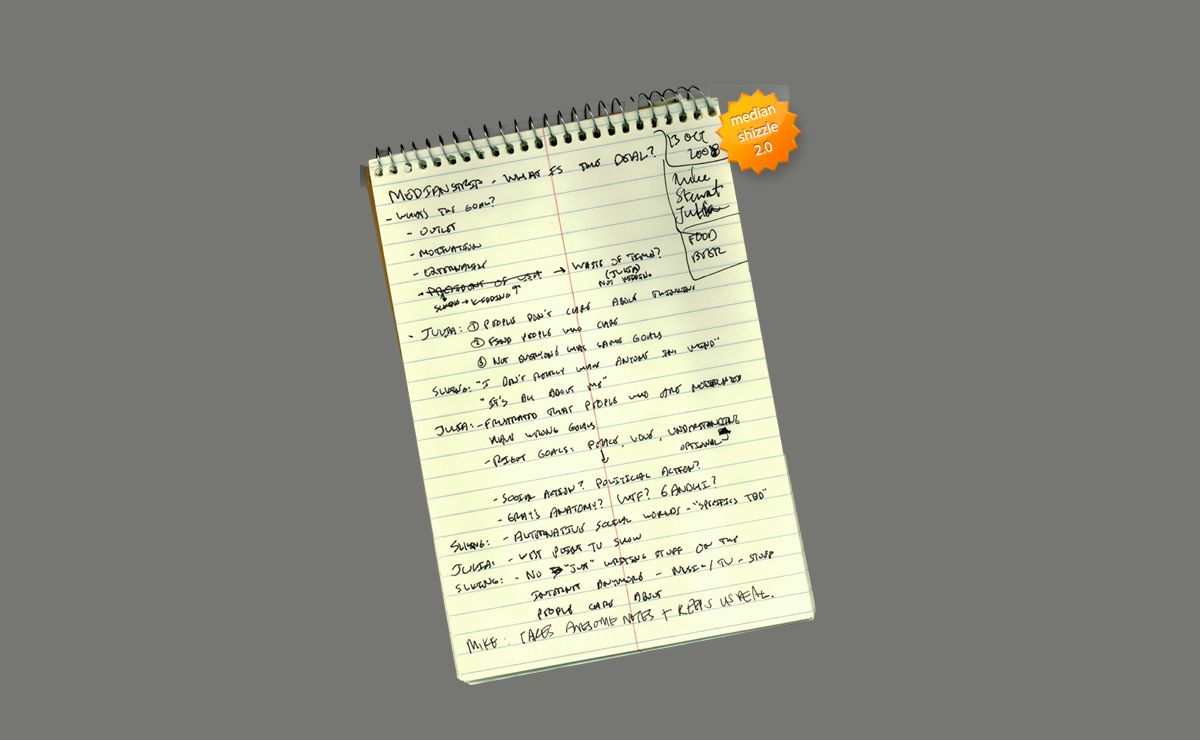 MEDIANSTRIP - WHAT IS THE DEAL?
13 OCT
2008
Mike
Stewart
Julia
FOOD
BEER
- WHAT'S THE GOAL?
- OUTLET
- MOTIVATION
- EXTERNALIZE
- PRESIDENT OF USA → WASTE OF TIME?
(JULIA)
NOT KIDDING
SLKENG → KIDDING ↑
- JULIA: ① PEOPLE DON'T CARE ABOUT THINKING
② FIND PEOPLE WHO CARE
③ NOT EVERYONE HAS SAME GOALS
"I DON'T REALLY HAVE ANYONE IN MIND"
"IT'S ALL ABOUT ME"
JULIA: - FRUSTRATED THAT PEOPLE WHO ARE MOTIVATED
HAVE WRONG GOALS
- RIGHT GOALS: PEACE, LOVE, UNDERSTANDING
OPTIONAL
- SOCIAL ACTION? POLITICAL ACTION?
- GRAY'S ANATOMY? WTF? GANDHI?
- ALTERNATIVE SOCIAL WORLDS - "SPECIFICS TBD"
JULIA: - WEST POINT TV SHOW
- NO "JUST" WRITING STUFF ON THE
INTERNET ANYMORE - MUSIC/TV - STUFF
PEOPLE CARE ABOUT
MIKE: TAKES AWESOME NOTES + KEEPS US REAL.
median
shizzle
2.0